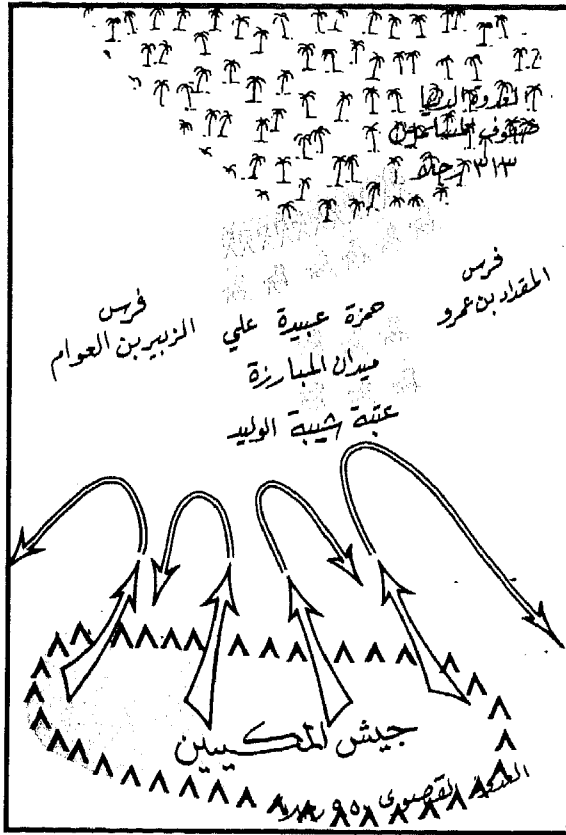 العدوة الدنيا
صفوف المسلمين
٣١٣ رجلا
فرس
المقداد بن عمرو
حمزة عبيدة علي
فرس
الزبير بن العوام
ميدان المبارزة
عتبة شيبة الوليد
جيش المكيين
العدوة القصوى ٩٥٠ رجلا